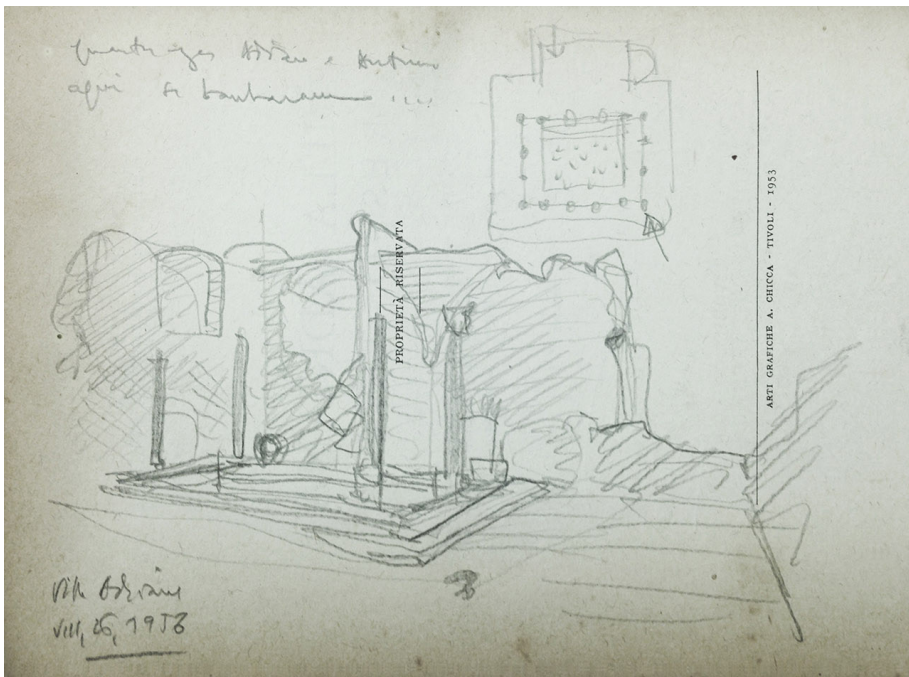 Adriano e Antinoo
qui si
PROPRIETÀ RISERVATA
ARTI GRAFICHE A. CHICCA - TIVOLI - 1953
Villa Adriana
VIII, 26, 1953